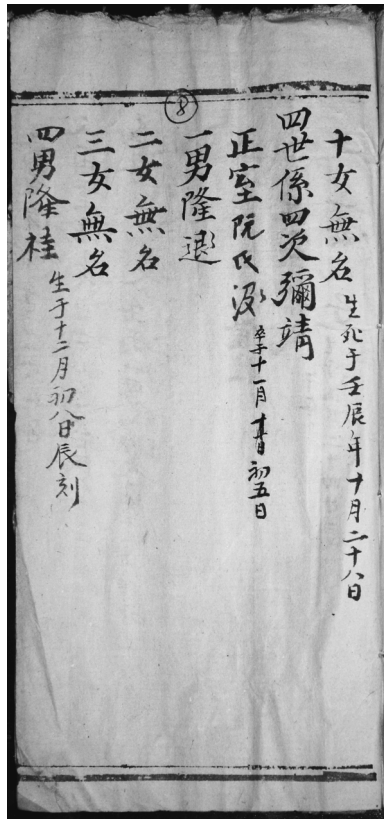 8
十女無名 生死于壬辰年十月二十八日
四世係四次彌靖
正室阮氏 卒于十一月 初五日
一男隆退
二女無名
三女無名
四男隆桂 生于十二月初八日辰刻